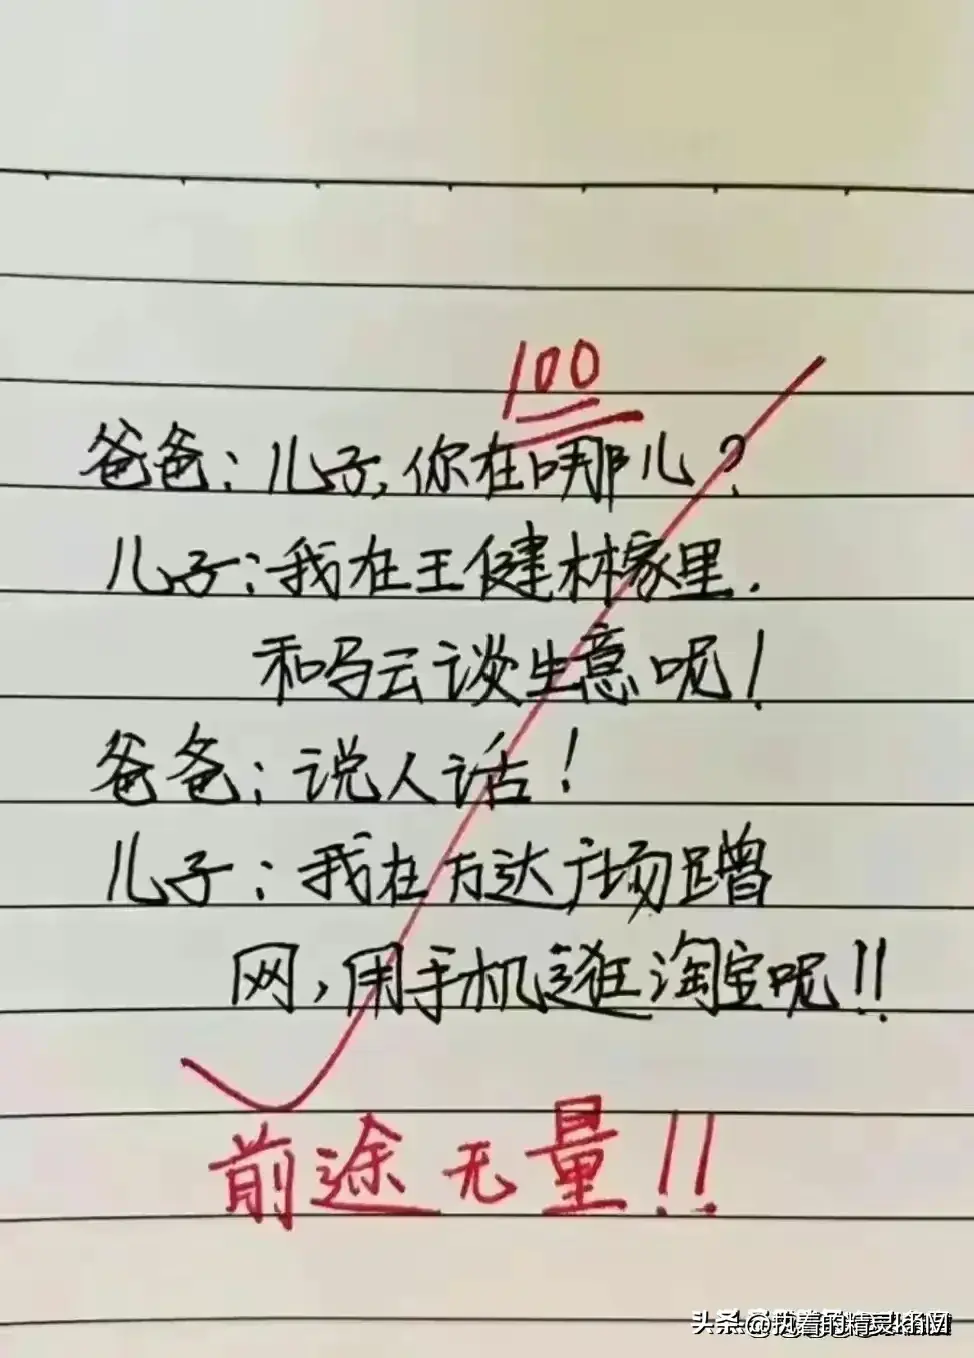 100
爸爸：儿子，你在哪儿？
儿子：我在王健林家里.
和马云谈生意呢！
爸爸：说人话！
儿子：我在万达广场蹭
网，用手机逛淘宝呢！！
前途无量！！
头条@执着的精灵